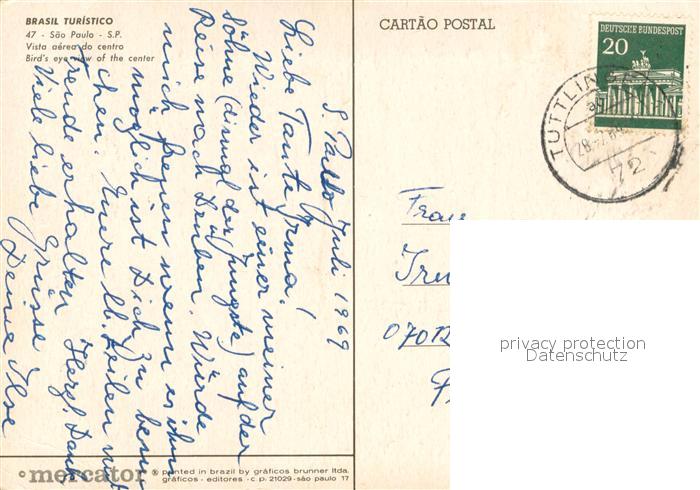 BRASIL TURÍSTICO
47 - São Paulo - S.P.
Vista aérea do centro
Bird's eye view of the center
S. Paulo Juli 1969
Liebe Tante Irma!
Wieder ist einer meiner
Söhne (dismal der Jüngste) auf der
Reise nach Drüben. Würde
mich freuen wenn es ihm
möglich ist Dich zu besu
chen. Euere lb. Zeilen mit
Freude erhalten Herzl. Dank
Viele liebe Grüsse
Deine Ilse
© mercator ® printed in brazil by gráficos brunner ltda.
gráficos - editores - c. p. 21029 - são paulo 17
CARTÃO POSTAL
DEUTSCHE BUNDESPOST
20
TUTTLINGEN
72
Frau
privacy protection
Datenschutz